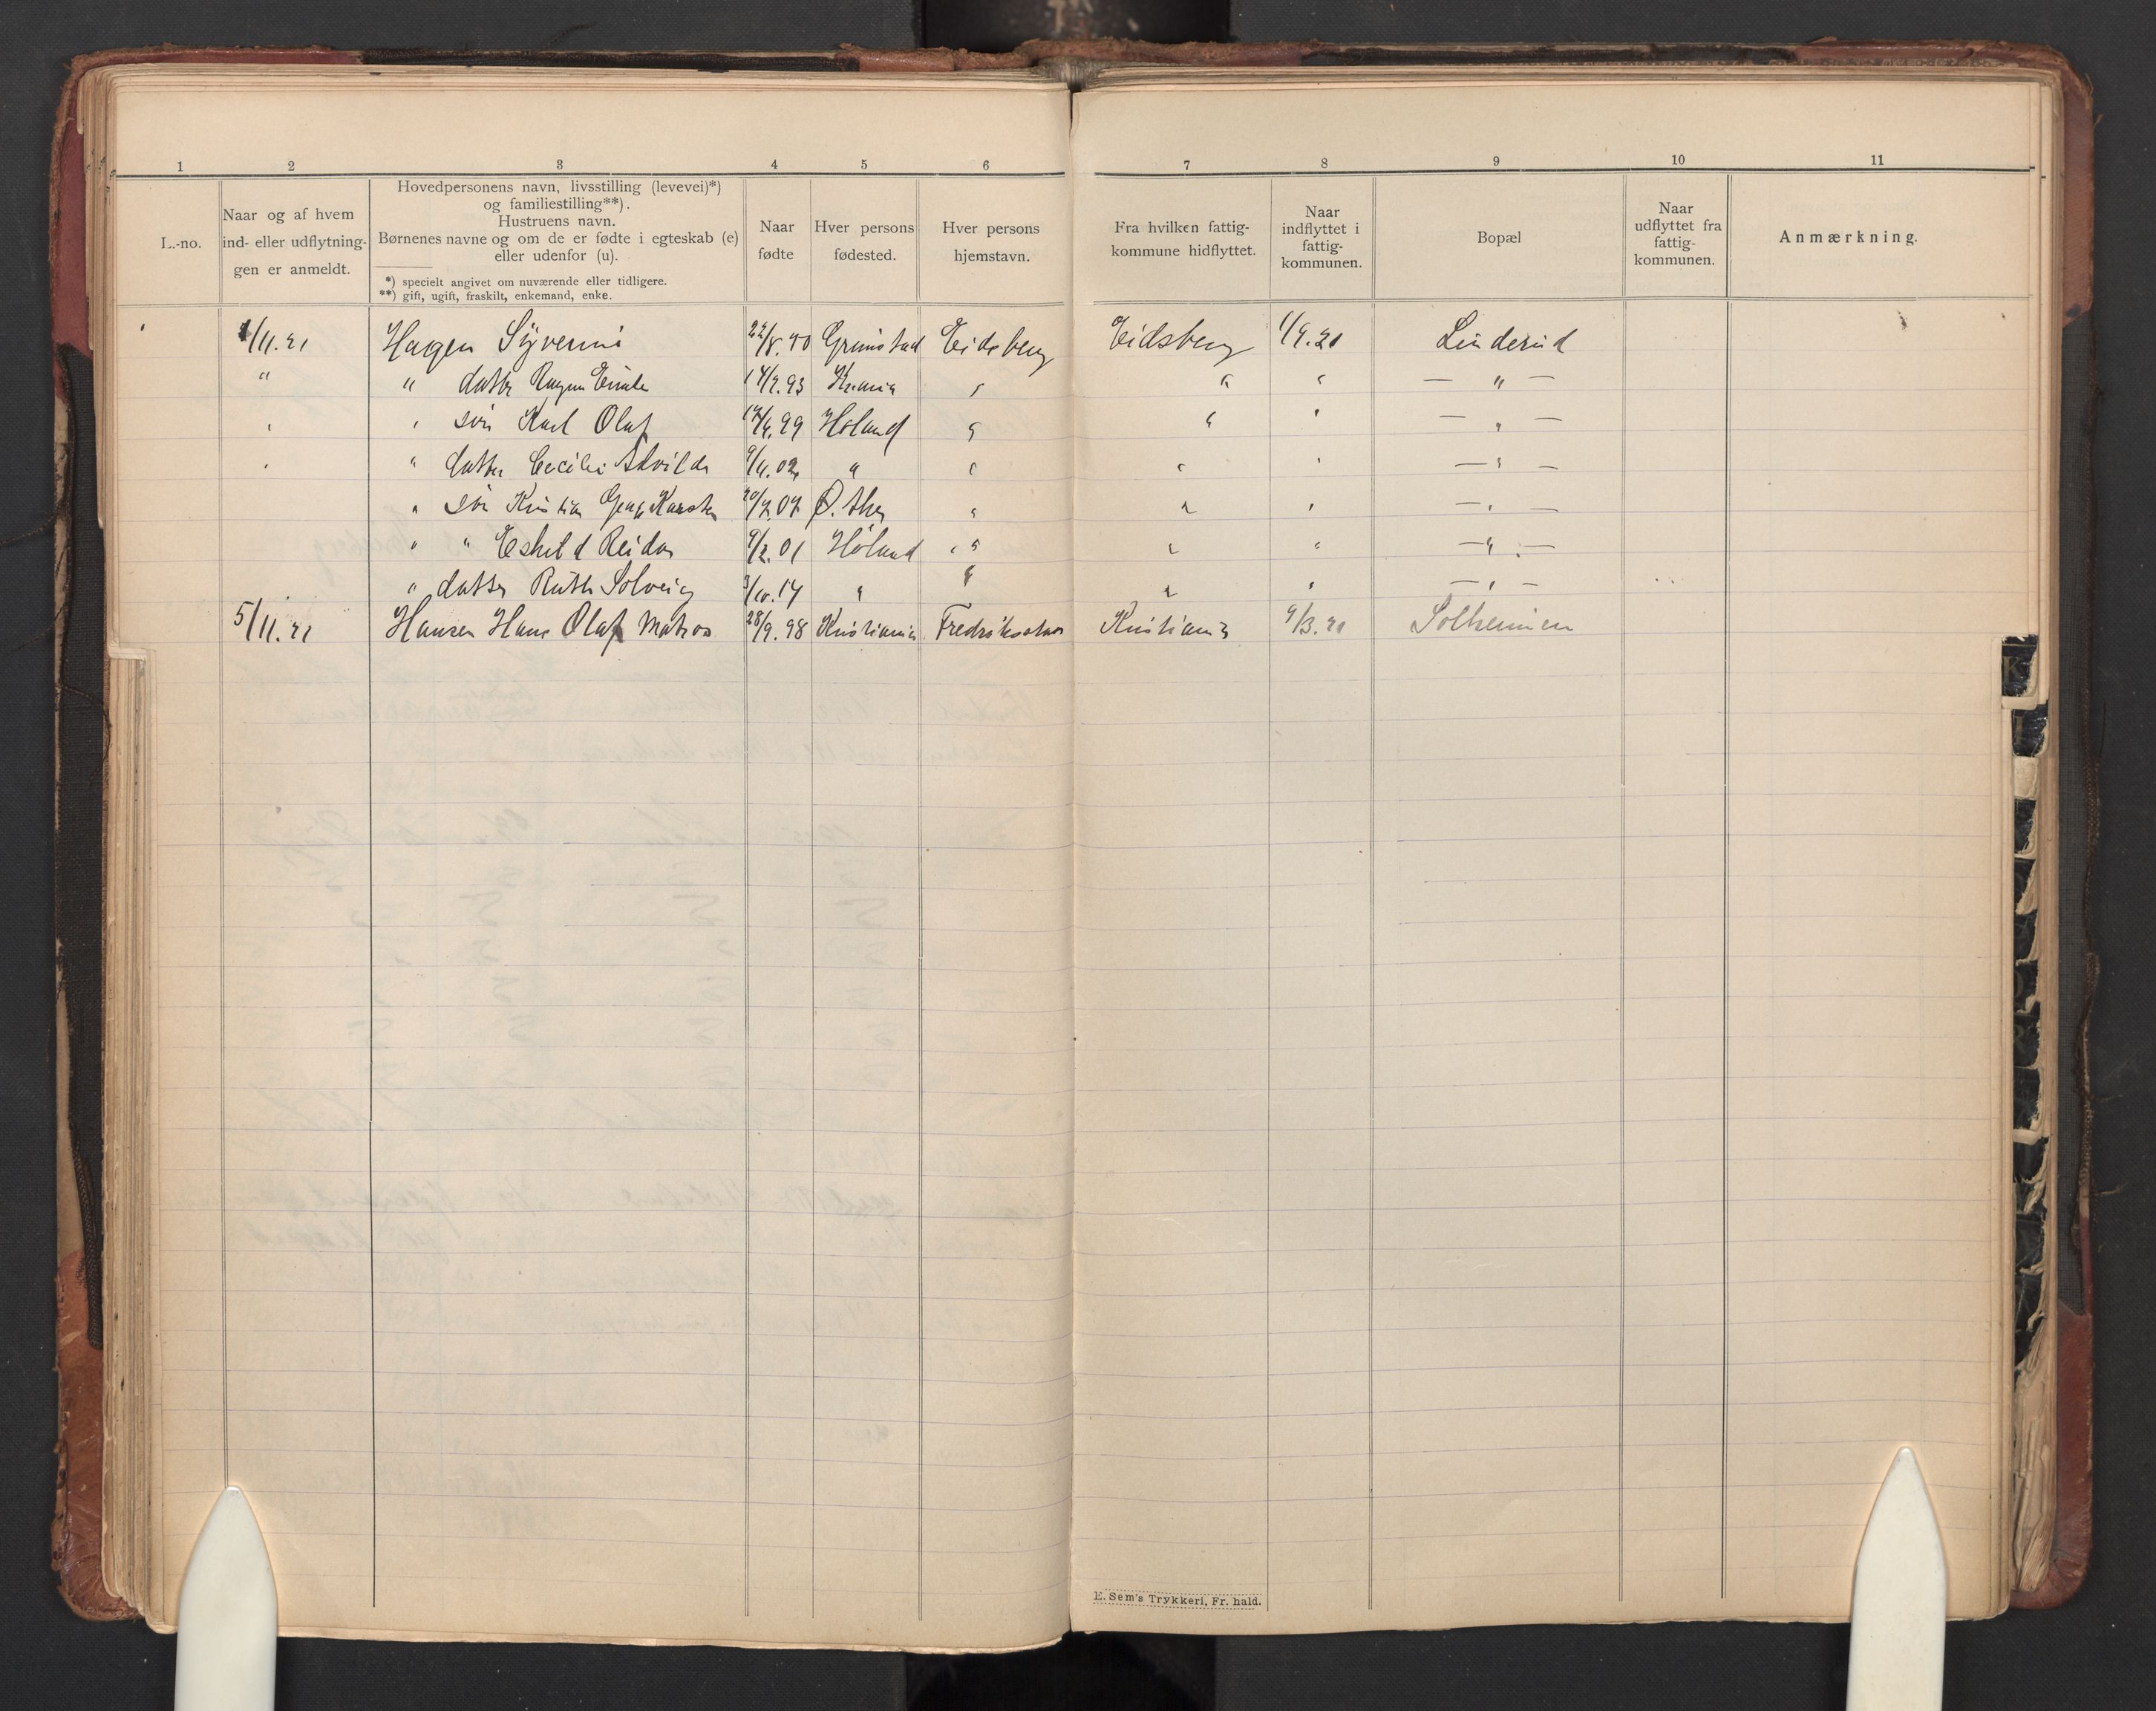 1 2 3 4 5 6 7 8 9 10 11
L.-no.
Naar og af hvem
ind- eller udflytnin-
gen er anmeldt.
Hovedpersonens navn, livsstilling (levevei)*)
og familiestilling**).
Hustruens navn.
Børnenes navne og om de er fødte i egteskab (e)
eller udenfor (u).
*) specielt angivet om nuværende eller tidligere.
**) gift, ugift, fraskilt, enkemand, enke.
Naar
fødte
Hver persons
fødested.
Hver persons
hjemstavn.
Fra hvilken fattig-
kommune hidflyttet.
Naar
indflyttet i
fattig-
kommunen.
Bopæl
Naar
udflyttet fra
fattig-
kommunen.
Anmærkning.
1/11.21 Hagen Syverine Grimstad Eidsberg Eidsberg 1/9.21 Linderud
" " datter 14/9.93 Krania " " " — " —
" " søn Karl Olaf 99 Høland " " " — " —
" " datter Cecilie 9/4.02 " " " " — " —
" søn Kristian " " " — " —
" " Eskild Reidar 9/2.01 Høland " " " " — " —
" datter Ruth Solveig 3/10.14 " " " " — " —
5/11.21 Hansen Hans Olaf Matros 28/9.98 Kristiania Fredriksstad Kristiania 9/3.21 Solheimen
E. Sem's Trykkeri, Fr. hald.
K